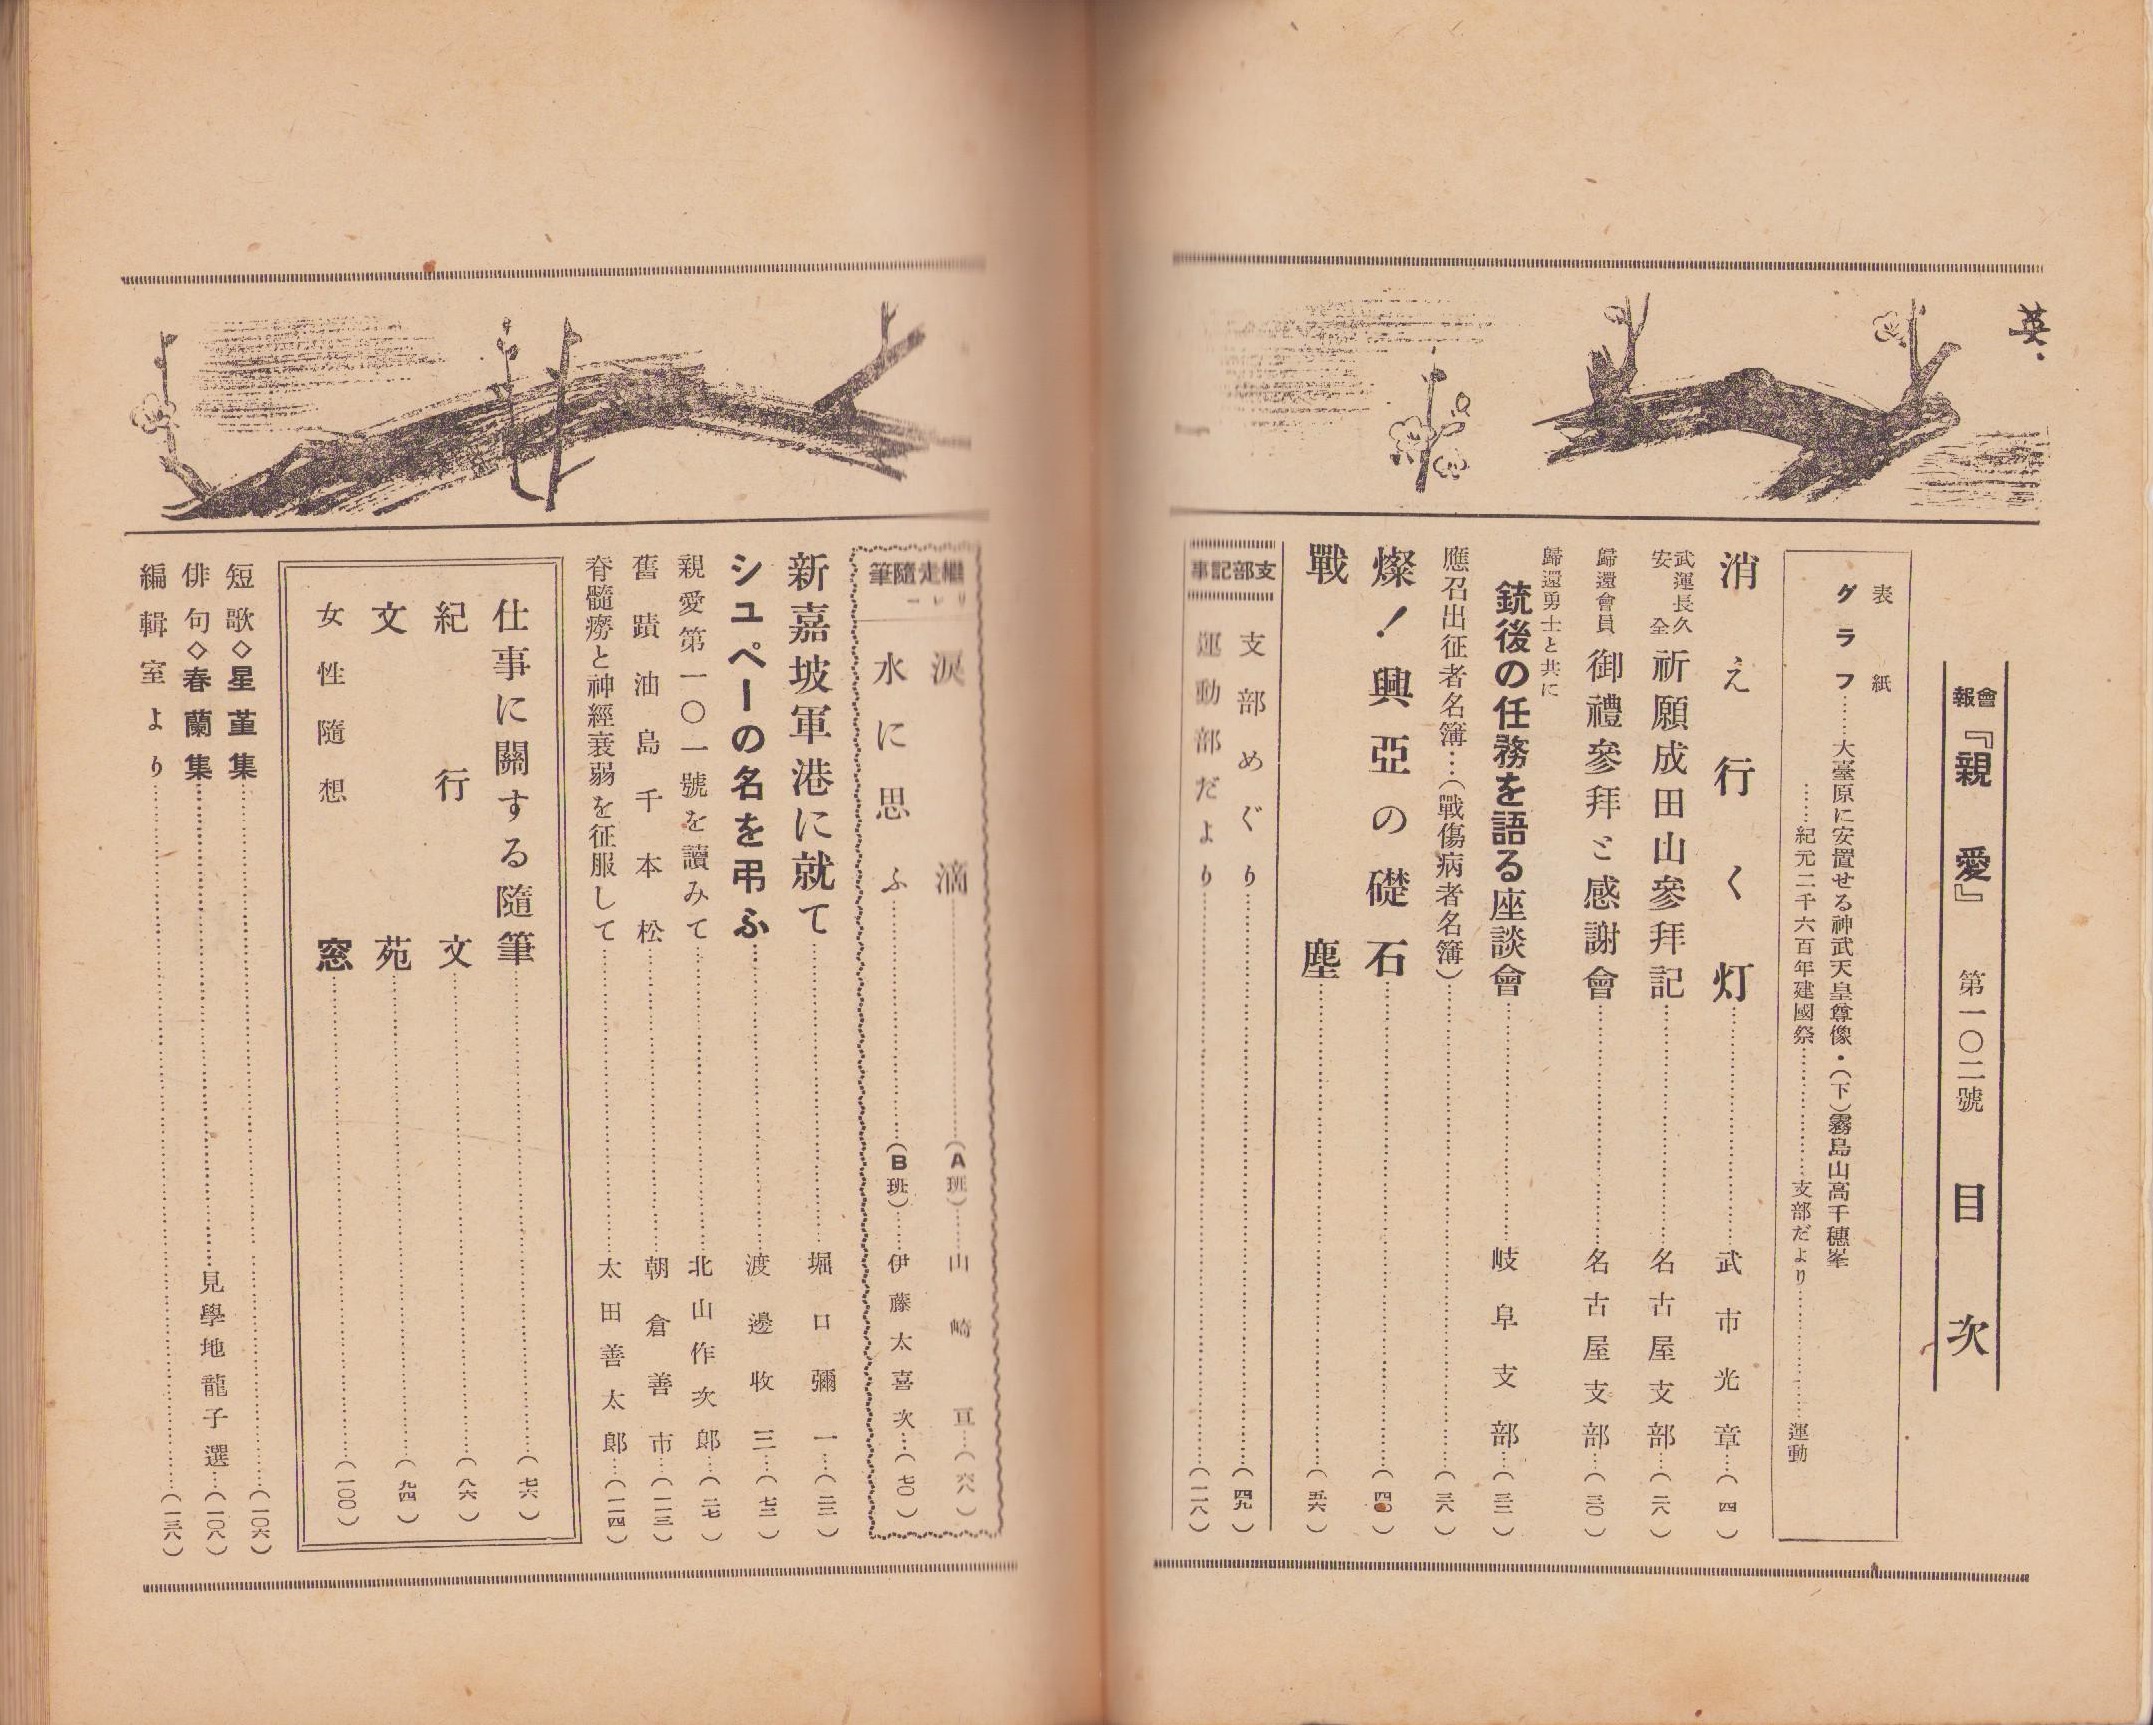 英
會報『親愛』第一〇二號 目次
表紙
グラフ……大臺原に安置せる神武天皇尊像・(下)霧島山高千穗峯
……紀元二千六百年建國祭……支部だより……運動
消え行く灯……武市光章…(四)
武運長久
安全
祈願成田山參拜記……名古屋支部…(二八)
歸還會員
御禮參拜と感謝會……名古屋支部…(三〇)
歸還勇士と共に
銃後の任務を語る座談會……岐阜支部…(三二)
應召出征者名簿…(戰傷病者名簿)……(三八)
燦!興亞の礎石……(四〇)
戰塵……(五六)
支部記事
支部めぐり……(四九)
運動部だより……(一二八)
繼走隨筆
涙滴……(A班)……山崎亘…(六八)
水に思ふ……(B班)……伊藤太喜次…(七〇)
新嘉坡軍港に就て……堀口彌一…(二三)
シュペーの名を弔ふ……渡邊收三…(七二)
親愛第一〇一號を讀みて……北山作次郎…(二七)
舊蹟油島千本松……朝倉善市…(一二三)
脊髓癆と神經衰弱を征服して……太田善太郎…(一二四)
仕事に關する隨筆……(七六)
紀行文……(八六)
文苑……(九四)
女性隨想窓……(一〇〇)
短歌◇星菫集……(一〇六)
俳句◇春蘭集……見學地龍子選…(一〇八)
編輯室より……(一三八)